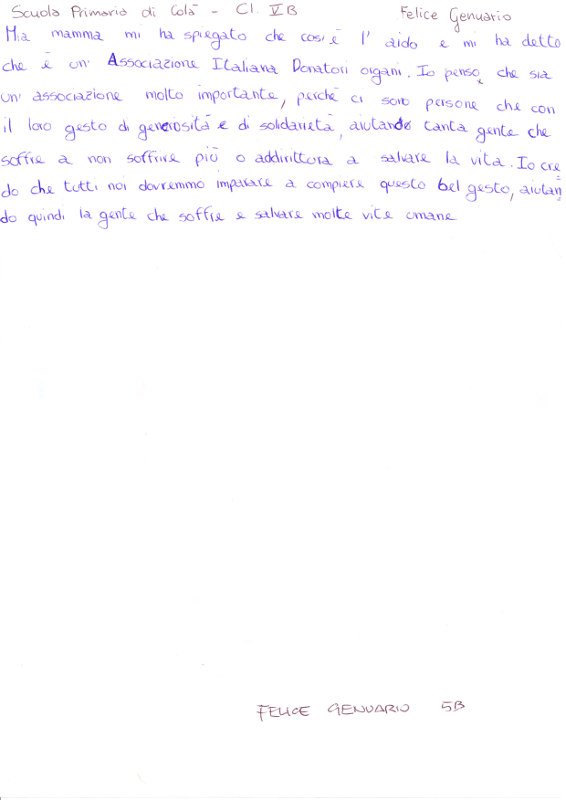 Scuola Primaria di Colà - Cl. VB Felice Genuario
Mia mamma mi ha spiegato che cos'è l'aido e mi ha detto
che è un'Associazione Italiana Donatori organi. Io penso che sia
un'associazione molto importante, perchè ci sono persone che con
il loro gesto di generosità e di solidarietà, aiutando tanta gente che
soffre a non soffrire più o addirittura a salvare la vita. Io cre
do che tutti noi dovremmo imparare a compiere questo bel gesto, aiutan
do quindi la gente che soffre e salvare molte vite umane
FELICE GENUARIO 5B